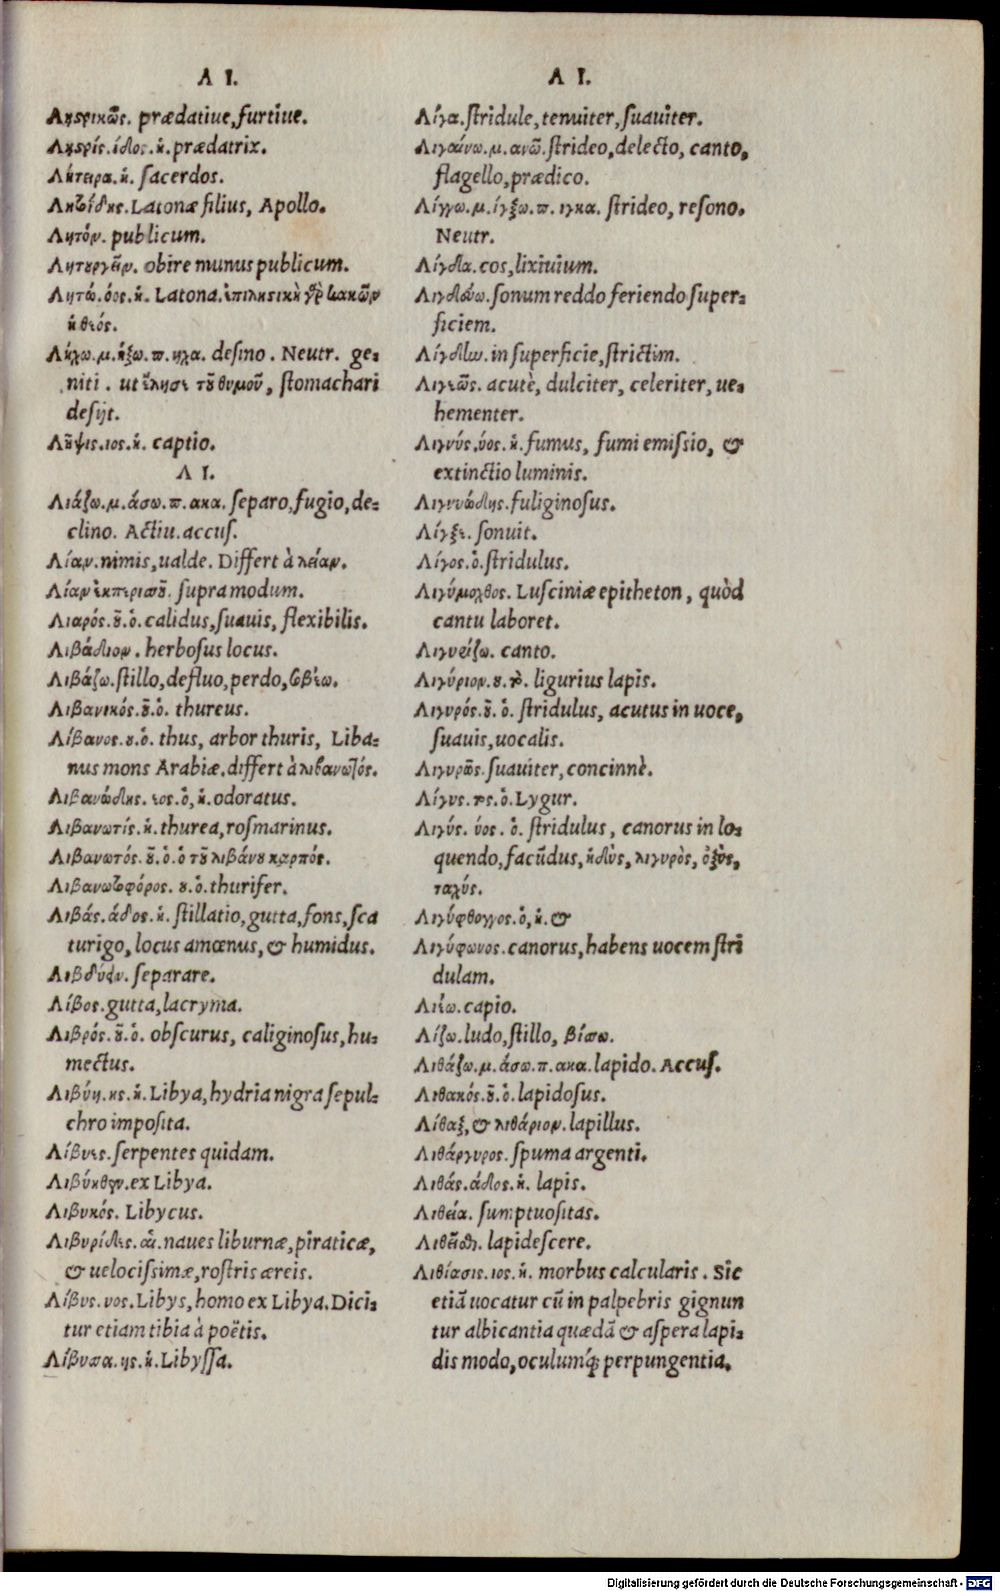 Λ Ι.
Λῃστρικῶς. prædatiue, furtiue.
Λῃστρίς. ίδος. ἡ. prædatrix.
Λήτειρα. ἡ. sacerdos.
Λητοΐδης. Latonæ filius, Apollo.
Λῃτόν. publicum.
Λῃτουργεῖν. obire munus publicum.
Λητώ. όος. ἡ. Latona. ἐπιληστικὴ γὰρ κακῶν
ἡ θεός.
Λήγω. μ. ήξω. π. ηχα. desino. Neutr. ge-
niti. ut ἔληξε τοῦ θυμοῦ, stomachari
desijt.
Λῆψις. ιος. ἡ. captio.
Λ Ι.
Λιάζω. μ. άσω. π. ακα. separo, fugio, de-
clino. Actiu. accus.
Λίαν. nimis, ualde. Differt à λείαν.
Λίαν ἐκπερισσοῦ. supra modum.
Λιαρός. οῦ. ὁ. calidus, suauis, flexibilis.
Λιβάδιον. herbosus locus.
Λιβάζω. stillo, defluo, perdo, σβέω.
Λιβανικός. οῦ. ὁ. thureus.
Λίβανος. ου. ὁ. thus, arbor thuris, Liba-
nus mons Arabiæ. differt à λιβανωτός.
Λιβανώδης. εος. ὁ, ἡ. odoratus.
Λιβανωτίς. ἡ. thurea, rosmarinus.
Λιβανωτός. οῦ. ὁ. ὁ τοῦ λιβάνου καρπός.
Λιβανωτοφόρος. ου. ὁ. thurifer.
Λιβάς. άδος. ἡ. stillatio, gutta, fons, sca
turigo, locus amœnus, & humidus.
Λιβδύειν. separare.
Λίβος. gutta, lacryma.
Λιβρός. οῦ. ὁ. obscurus, caliginosus, hu-
mectus.
Λιβύη. ης. ἡ. Libya, hydria nigra sepul-
chro imposita.
Λίβυες. serpentes quidam.
Λιβύηθεν. ex Libya.
Λιβυκός. Libycus.
Λιβυρίδες. αἱ. naues liburnæ, piraticæ,
& uelocissimæ, rostris æreis.
Λίβυς. υος. Libys, homo ex Libya. Dici-
tur etiam tibia à poëtis.
Λίβυσσα. ης. ἡ. Libyssa.
Λ Ι.
Λίγα. stridule, tenuiter, suauiter.
Λιγαίνω. μ. ανῶ. strideo, delecto, canto,
flagello, prædico.
Λίγγω. μ. ίγξω. π. ιγκα. strideo, resono.
Neutr.
Λίγδα. cos, lixiuium.
Λιγδεύω. sonum reddo feriendo super-
ficiem.
Λίγδην. in superficie, strictim.
Λιγεῶς. acutè, dulciter, celeriter, ue-
hementer.
Λιγνύς. ύος. ἡ. fumus, fumi emissio, &
extinctio luminis.
Λιγνυώδης. fuliginosus.
Λίγξε. sonuit.
Λίγος. ὁ. stridulus.
Λιγύμοχθος. Lusciniæ epitheton, quòd
cantu laboret.
Λιγυρίζω. canto.
Λιγύριον. ου. τό. ligurius lapis.
Λιγυρός. οῦ. ὁ. stridulus, acutus in uoce,
suauis, uocalis.
Λιγυρῶς. suauiter, concinnè.
Λίγυς. υος. ὁ. Lygur.
Λιγύς. ύος. ὁ. stridulus, canorus in lo-
quendo, facũdus, ἡδὺς, λιγυρὸς, ὀξὺς,
ταχύς.
Λιγύφθογγος. ὁ, ἡ. &
Λιγύφωνος. canorus, habens uocem stri
dulam.
Λιέω. capio.
Λίζω. ludo, stillo, βίσσω.
Λιθάζω. μ. άσω. π. ακα. lapido. Accus.
Λιθακός. οῦ. ὁ. lapidosus.
Λίθαξ, & λιθάριον. lapillus.
Λιθάργυρος. spuma argenti.
Λιθάς. άδος. ἡ. lapis.
Λιθεία. sumptuositas.
Λιθεῖσθαι. lapidescere.
Λιθίασις. ιος. ἡ. morbus calcularis. Sic
etiã uocatur cũ in palpebris gignun
tur albicantia quædã & aspera lapi-
dis modo, oculumq́; perpungentia.
Digitalisierung gefördert durch die Deutsche Forschungsgemeinschaft - DFG